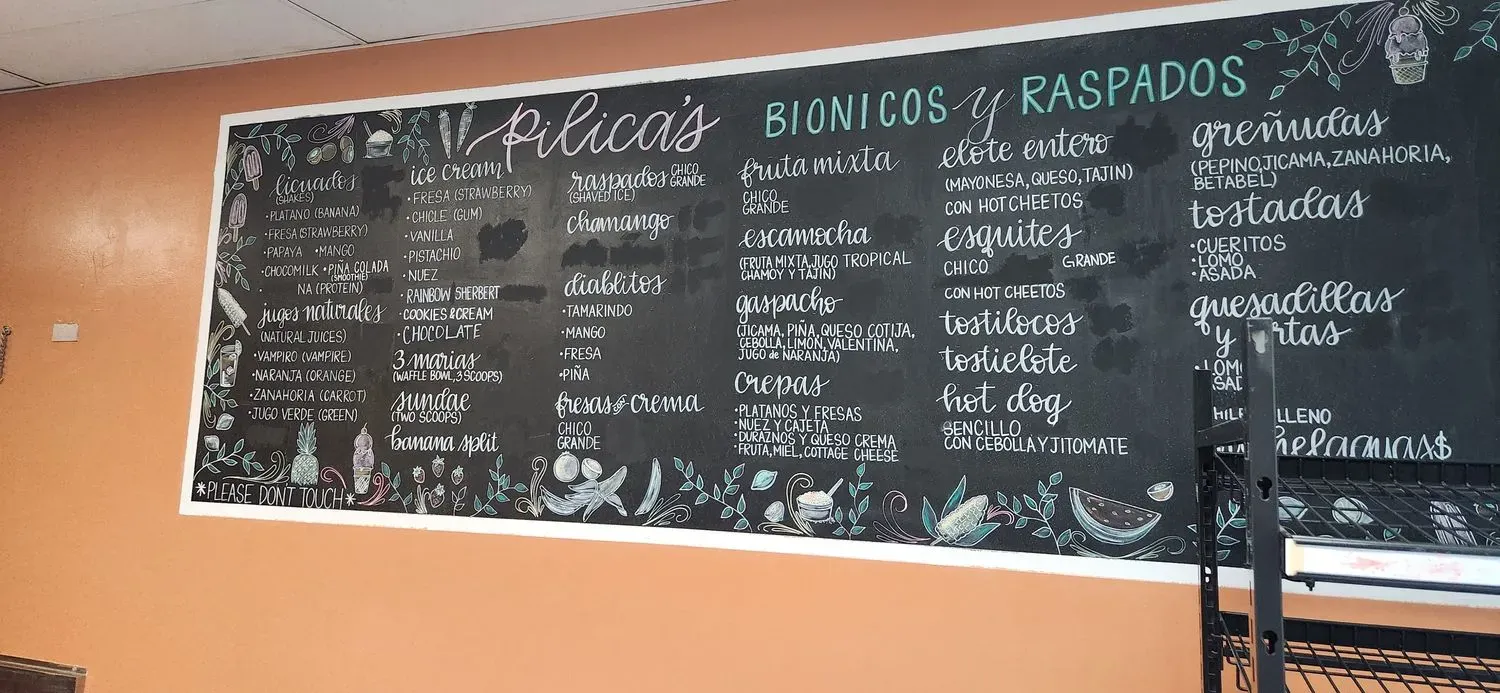 Pilica's
BIONICOS y RASPADOS
licuados
(SHAKES)
• PLATANO (BANANA)
• FRESA (STRAWBERRY)
• PAPAYA • MANGO
• CHOCOMILK • PIÑA COLADA
(SMOOTHIE)
NA (PROTEIN)
jugos naturales
(NATURAL JUICES)
• VAMPIRO (VAMPIRE)
• NARANJA (ORANGE)
• ZANAHORIA (CARROT)
• JUGO VERDE (GREEN)
*PLEASE DONT TOUCH*
ice cream
• FRESA (STRAWBERRY)
• CHICLE (GUM)
• VANILLA
• PISTACHIO
• NUEZ
• RAINBOW SHERBERT
• COOKIES & CREAM
• CHOCOLATE
3 marias
(WAFFLE BOWL, 3 SCOOPS)
sundae
(TWO SCOOPS)
banana split
raspados CHICO
GRANDE
(SHAVED ICE)
chamango
diablitos
• TAMARINDO
• MANGO
• FRESA
• PIÑA
fresas con crema
CHICO
GRANDE
fruta mixta
CHICO
GRANDE
escamocha
(FRUTA MIXTA, JUGO TROPICAL
CHAMOY Y TAJIN)
gaspacho
(JICAMA, PIÑA, QUESO COTIJA,
CEBOLLA, LIMON, VALENTINA,
JUGO de NARANJA)
crepas
• PLATANOS Y FRESAS
• NUEZ Y CAJETA
• DURAZNOS Y QUESO CREMA
• FRUTA, MIEL, COTTAGE CHEESE
elote entero
(MAYONESA, QUESO, TAJIN)
CON HOT CHEETOS
esquites
CHICO GRANDE
CON HOT CHEETOS
tostilocos
tostielote
hot dog
SENCILLO
CON CEBOLLA Y JITOMATE
greñudas
(PEPINO, JICAMA, ZANAHORIA,
BETABEL)
tostadas
• CUERITOS
• LOMO
• ASADA
quesadillas
y